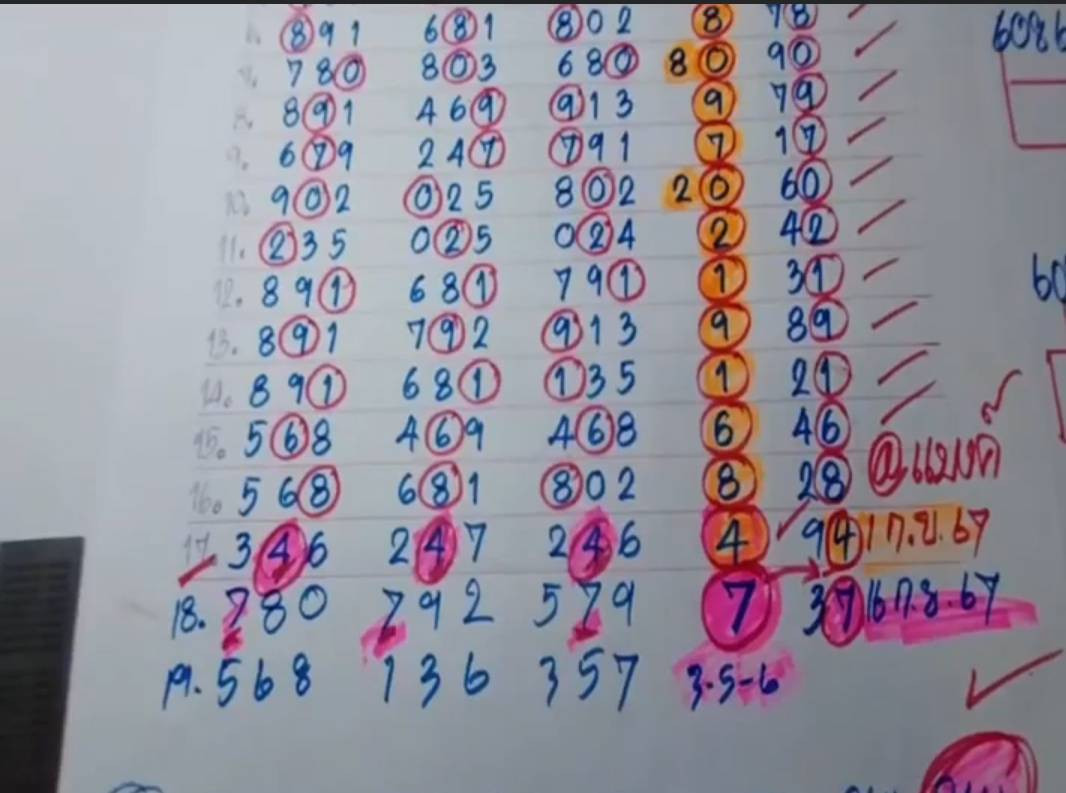 891 681 802 8 78
780 803 680 80 90
8. 891 469 913 9 79
9. 679 247 791 7 17
10. 902 025 802 20 60
11. 235 025 024 2 42
12. 891 681 791 1 31
13. 891 792 913 9 89
14. 891 681 135 1 21
15. 568 469 468 6 46
16. 568 681 802 8 28
17 346 247 246 4 94 1 ก.ย. 67
18. 780 792 579 7 37 16 ก.ย. 67
19. 568 136 357 3-5-6
6086
60